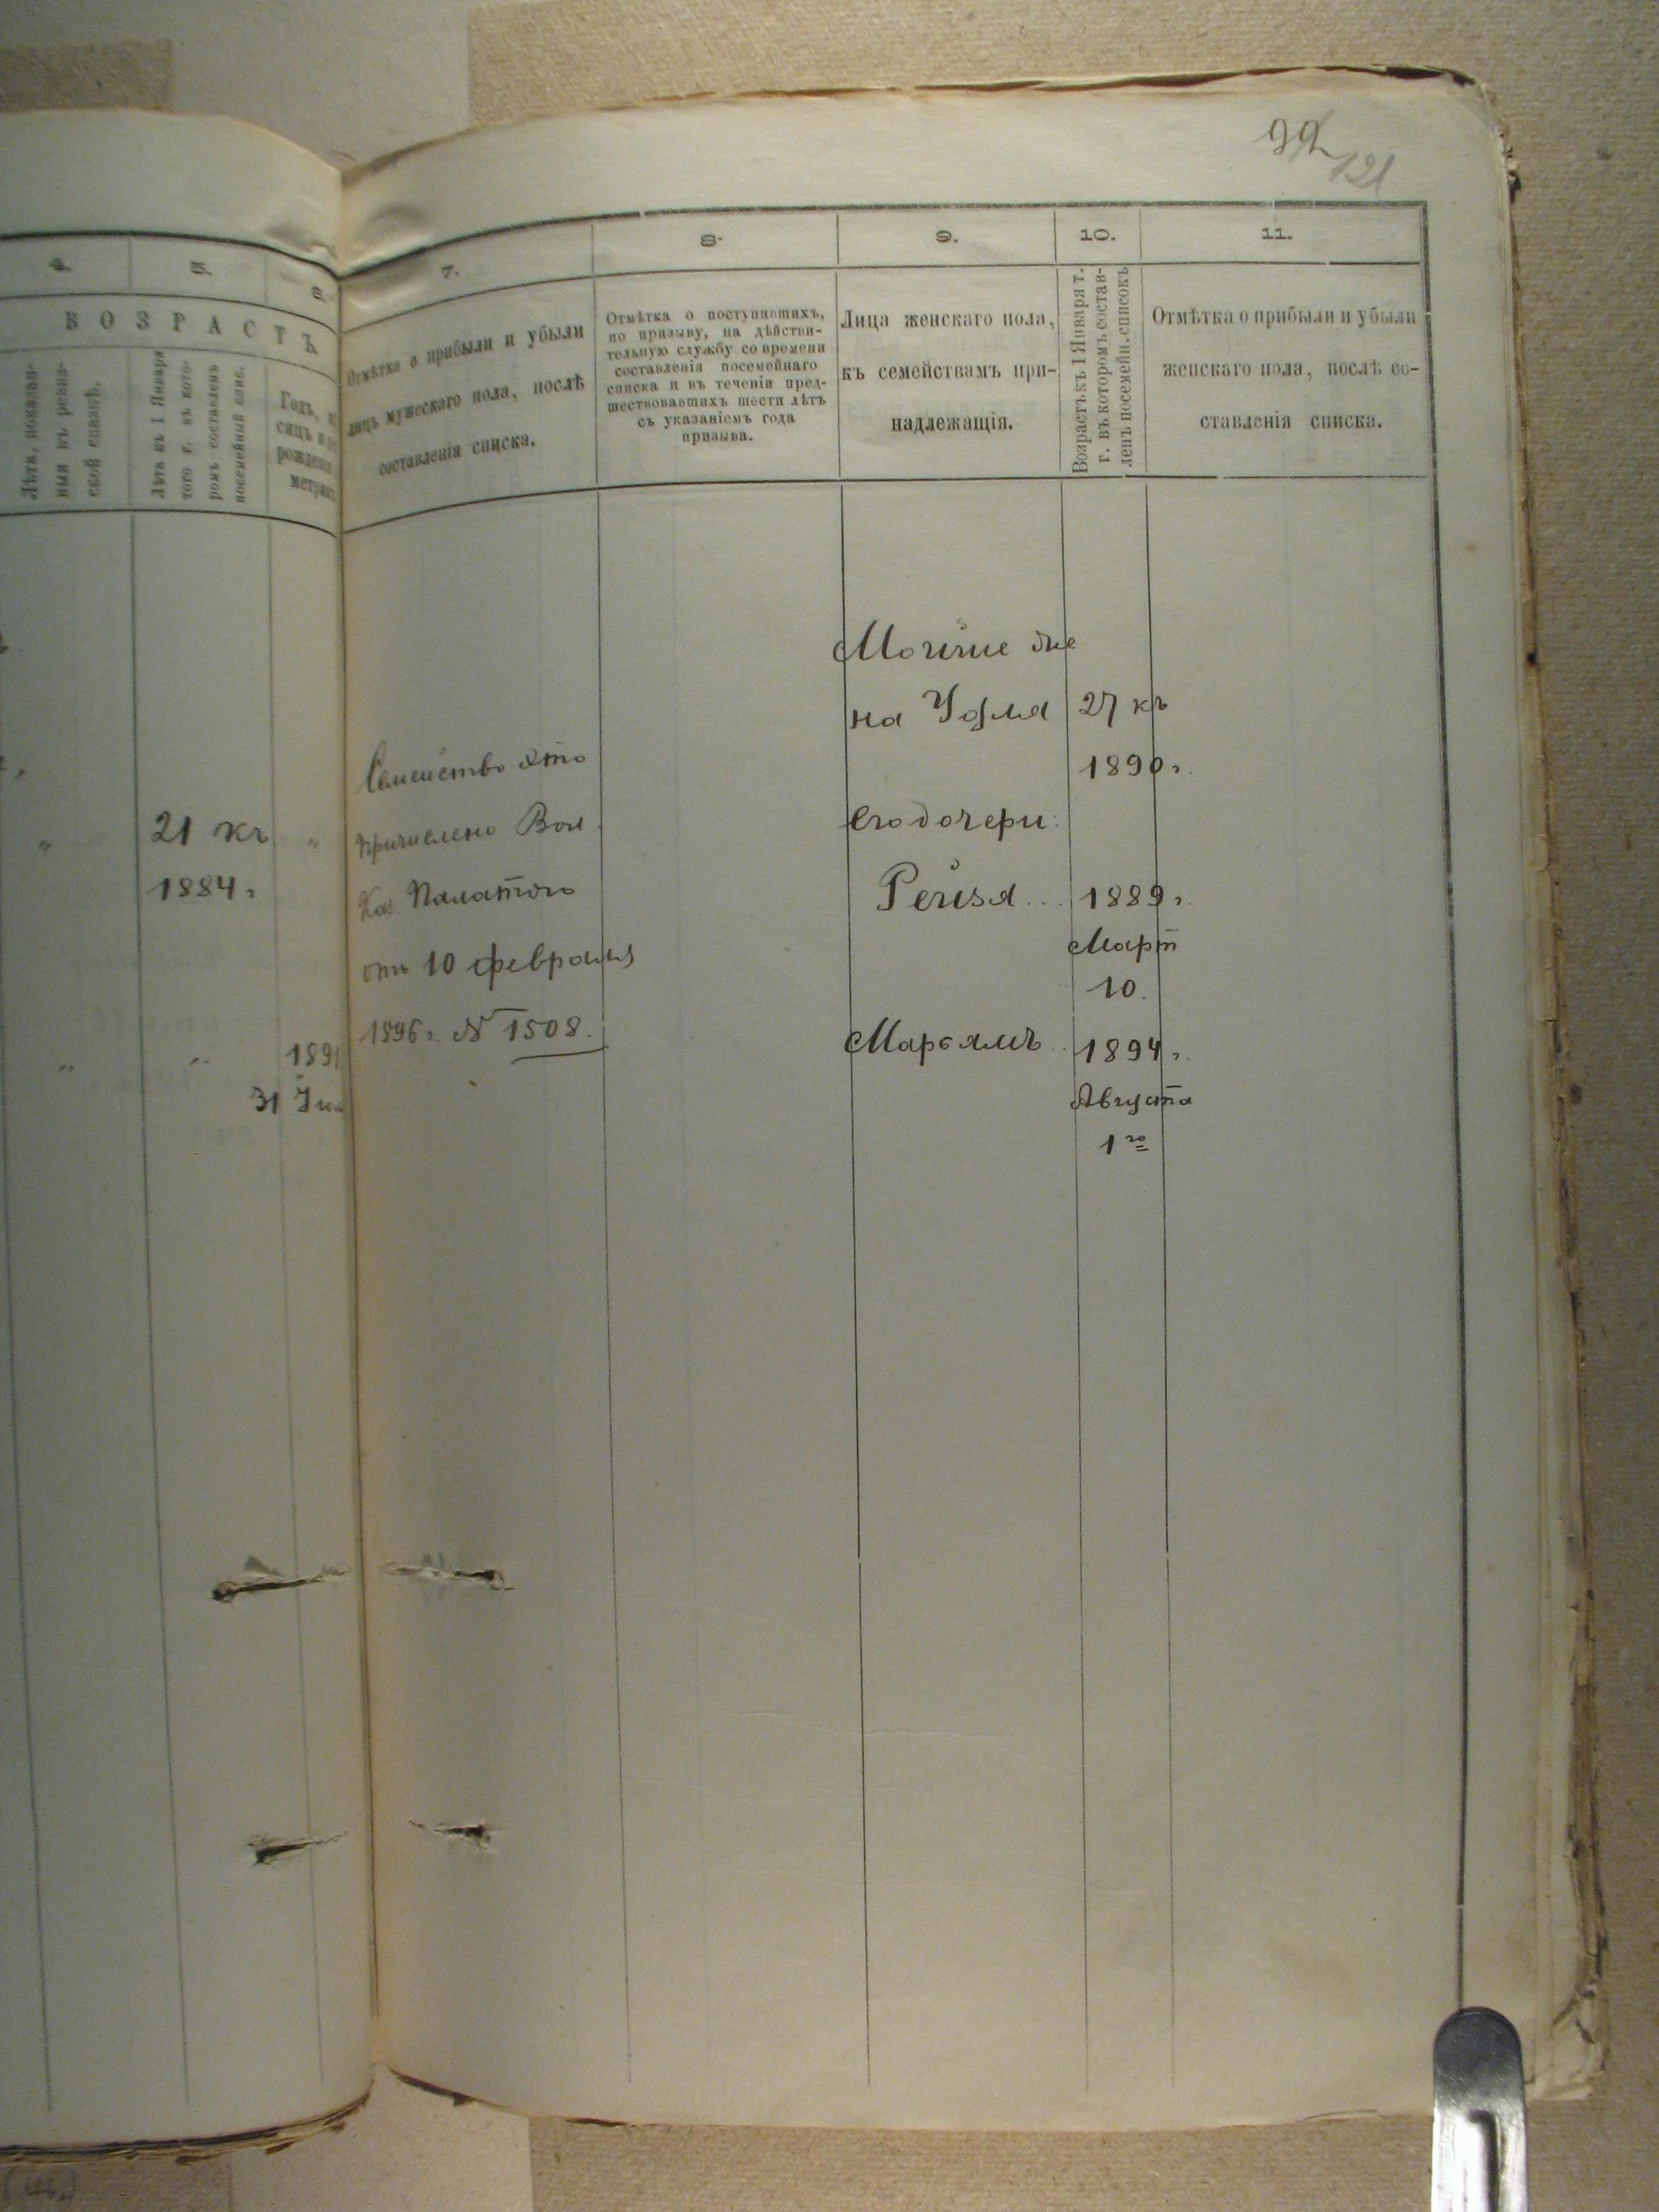 92
121
4.
5.
6.
7.
8.
9.
10.
11.
ВОЗРАСТЪ
Лѣта, показан-
ныя въ ревиз-
ской сказкѣ.
Лѣта къ 1 Января
того г. въ кото-
ромъ составленъ
посемейный спис.
Годъ,
рожденія
метрик
Отмѣтка о прибыли и убыли
лицъ мужескаго пола, послѣ
составленія списка.
Отмѣтка о поступившихъ,
по призыву, на дѣйстви-
тельную службу со времени
составленія посемейнаго
списка и въ теченіи пред-
шествовавшихъ шести лѣтъ
съ указаніемъ года
призыва.
Лица женскаго пола,
къ семействамъ при-
надлежащія.
Возрастъ къ 1 Января т.
г. въ которомъ состав-
ленъ посемейн. списокъ
Отмѣтка о прибыли и убыли
женскаго пола, послѣ со-
ставленія списка.
21 къ
1884 г
1891
31
Семейство это
причислено Вол.
Каз. Палатою
отъ 10 февраля
1896 г. N 1508.
же
на
27 къ
1890 г.
Его дочери:
Рейзя... 1889 г.
Март
10.
Марьямъ.. 1894 г.
Августа
1го